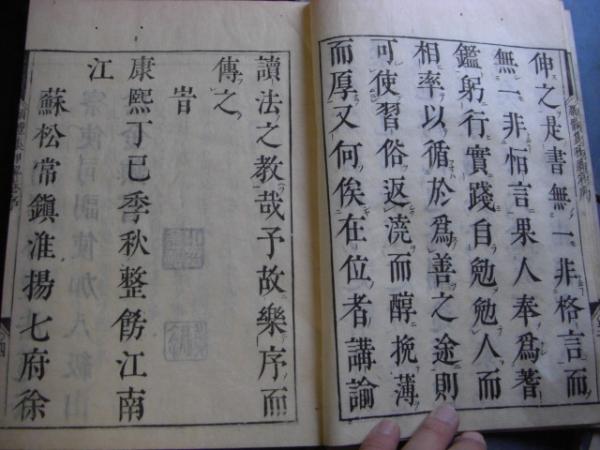 伸之是書無一非格言而
無一非恒言果人奉爲蓍
鑑躬行實踐自勉勉人而
相率以循於爲善之途則
可使習俗返澆而醇挽薄
而厚又何俟在位者講諭
讀法之教哉予故樂序而
傳之
旹
康熙丁巳季秋整飭江南
江
蘇松常鎮淮揚七府徐